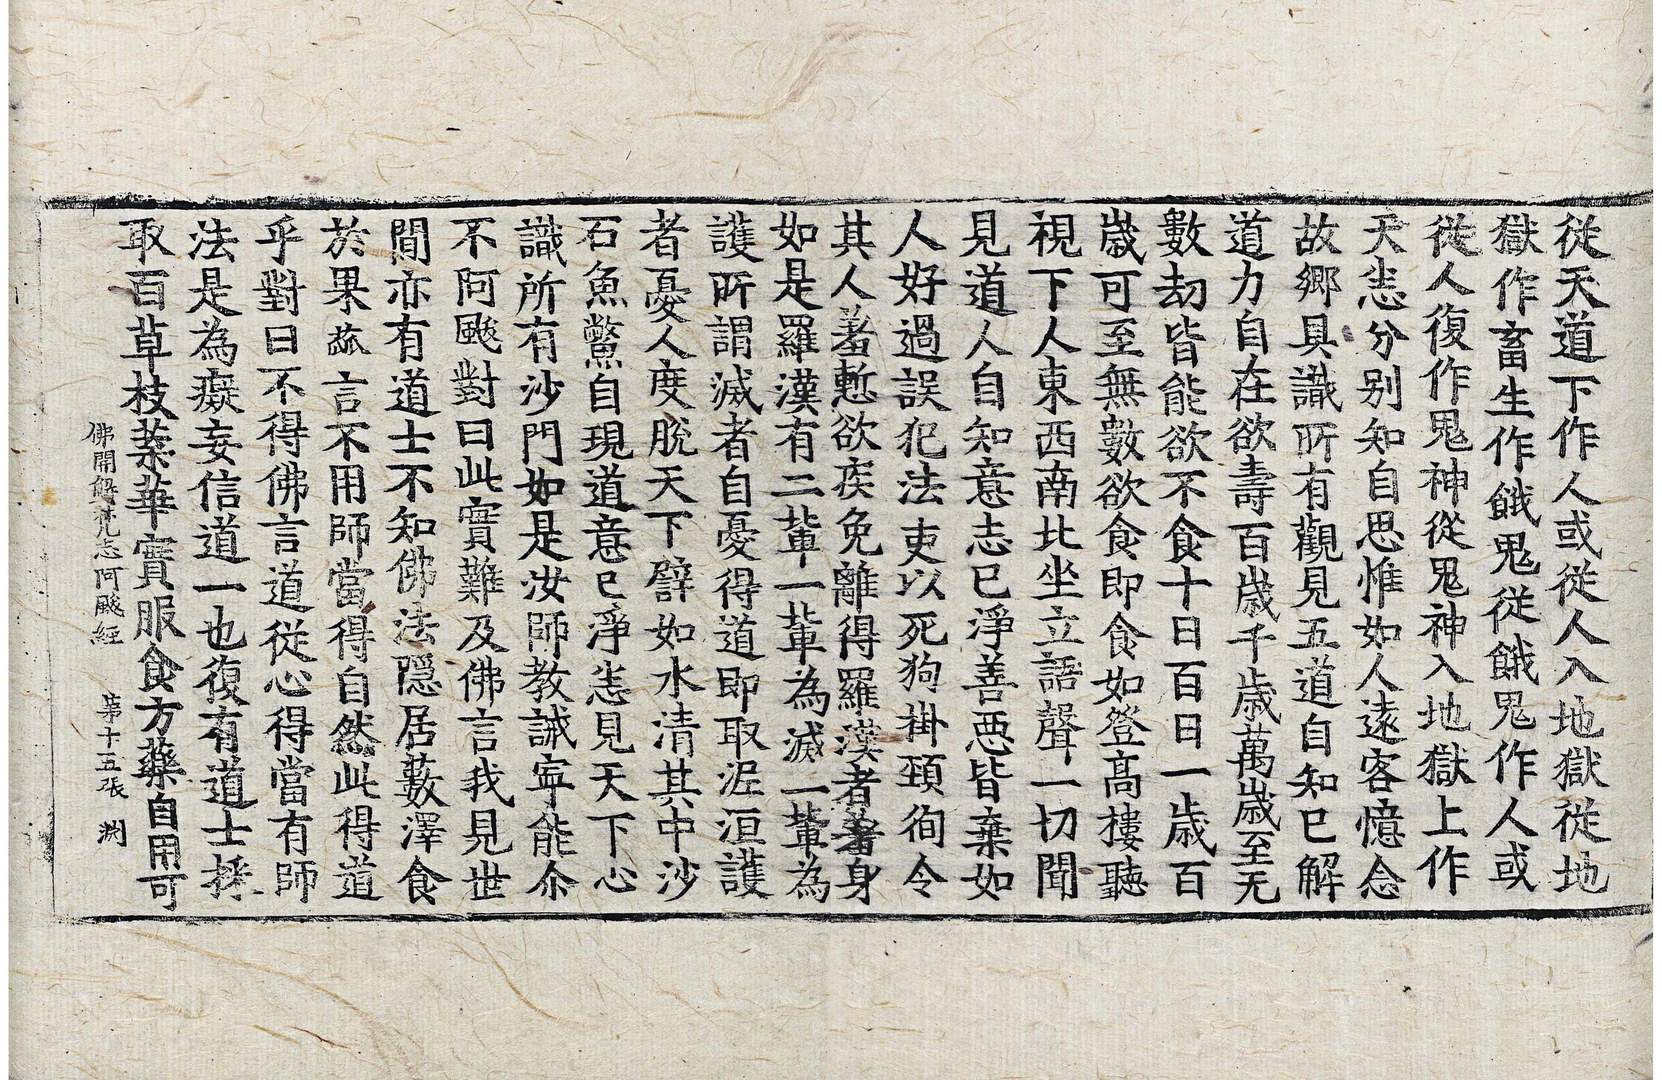 從天道下作人或從人入地獄從地
獄作畜生作餓鬼從餓鬼作人或
從人復作鬼神從鬼神入地獄上作
天悉分別知自思惟如人遠客憶念
故鄉具識所有觀見五道自知已解
道力自在欲壽百歲千歲萬歲至无
數劫皆能欲不食十日百日一歲百
歲可至無數欲食即食如登高樓聽
視下人東西南北坐立語聲一切聞
見道人自知意志已淨善惡皆棄如
人好過誤犯法吏以死狗掛頸徇令
其人羞慙欲疾免離得羅漢者著身
如是羅漢有二輩一輩為滅一輩為
護所謂滅者自憂得道即取泥洹護
者憂人度脫天下譬如水清其中沙
石魚鼈自現道意已淨悉見天下心
識所有沙門如是汝師教誡寧能尒
不阿颰對曰此實難及佛言我見世
間亦有道士不知佛法隱居藪澤食
於果蓏言不用師當得自然此得道
乎對曰不得佛言道從心得當有師
法是為癡妄信道一也復有道士採
取百草枝葉華實服食方藥自用可
佛開解梵志阿颰經 第十五張 淵